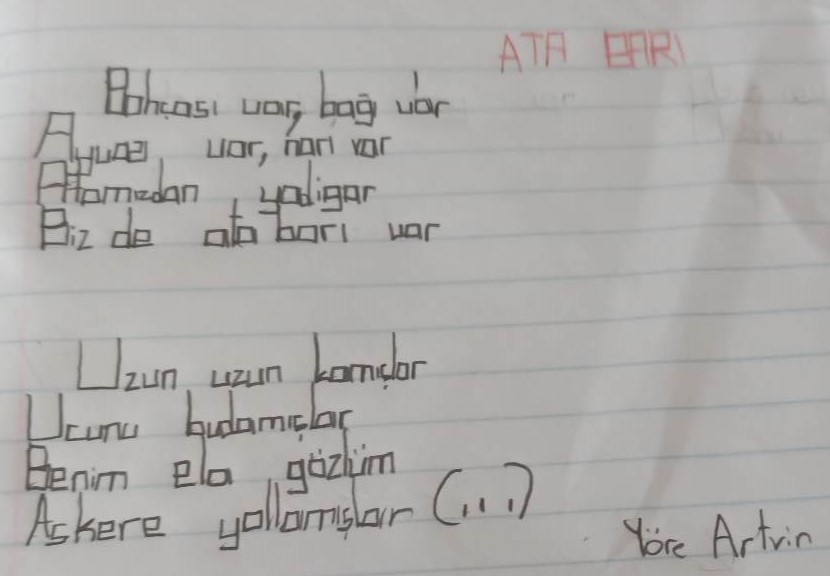 ATA BARI
Bahçası var, bağı var
Ayvası var, narı var
Atamızdan yadigar
Biz de ata barı var
Uzun uzun kamışlar
Ucunu budamışlar
Benim ela gözlüm
Askere yollamışlar (...)
Yöre Artvin